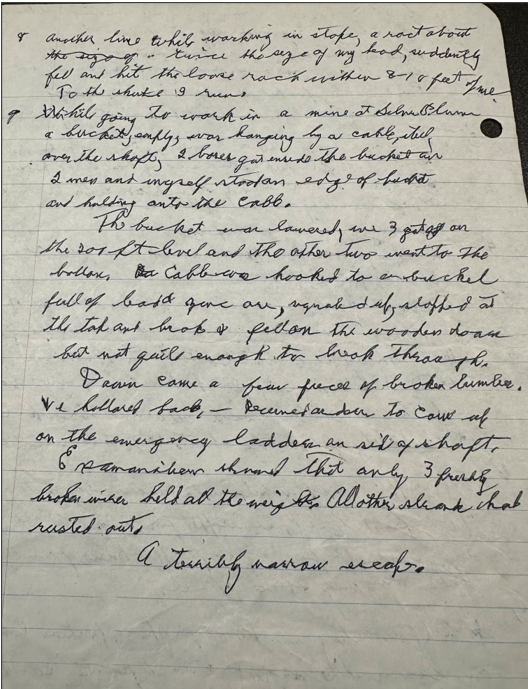 8 another time while working in stope, a rock about
the size of twice the size of my head, suddenly
fell and hit the loose rock within 8-10 feet of me
To the chute I run.
9 While going to work in a mine at Silver Plume
a bucket, empty, was hanging by a cable, steel
over the shaft, 2 boxes got inside the bucket an
2 men and myself stood on edge of bucket
and holding onto the cable.
The bucket was lowered, we 3 got off on
the 200 ft level and the other two went to the
bottom. Cable was hooked to a bucket
full of lead zinc ore, signaled up, stopped at
the top and broke & fell on the wooden doors
but not quite enough to break through.
Down came a few pieces of broken lumber.
We hollared back, — Received orders to come up
on the emergency ladders on side of shaft.
Examination showed that only 3 freshly
broken wires held all the weight. All other strands had
rusted out.
A terribly narrow escape.